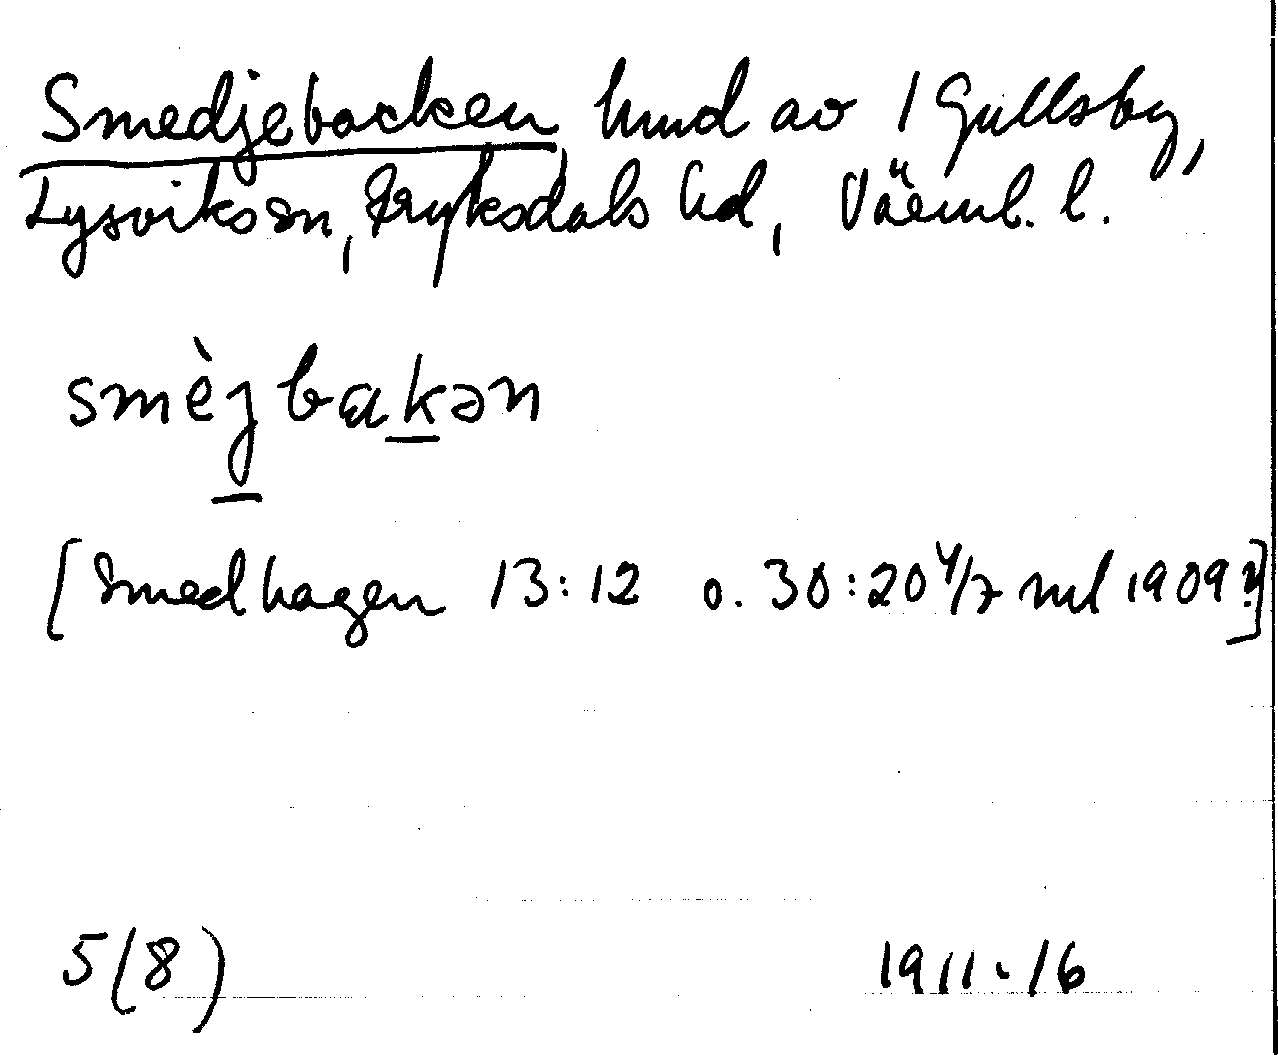 Smedjebacken hmd av 1 Gullsby,
Lysviks sn, Fryksdals hd, Värml. l.
smèjbakən
[Smedhagen 13:12 o. 30:20 4/7 ml 1909?]
5(8)
1911-16